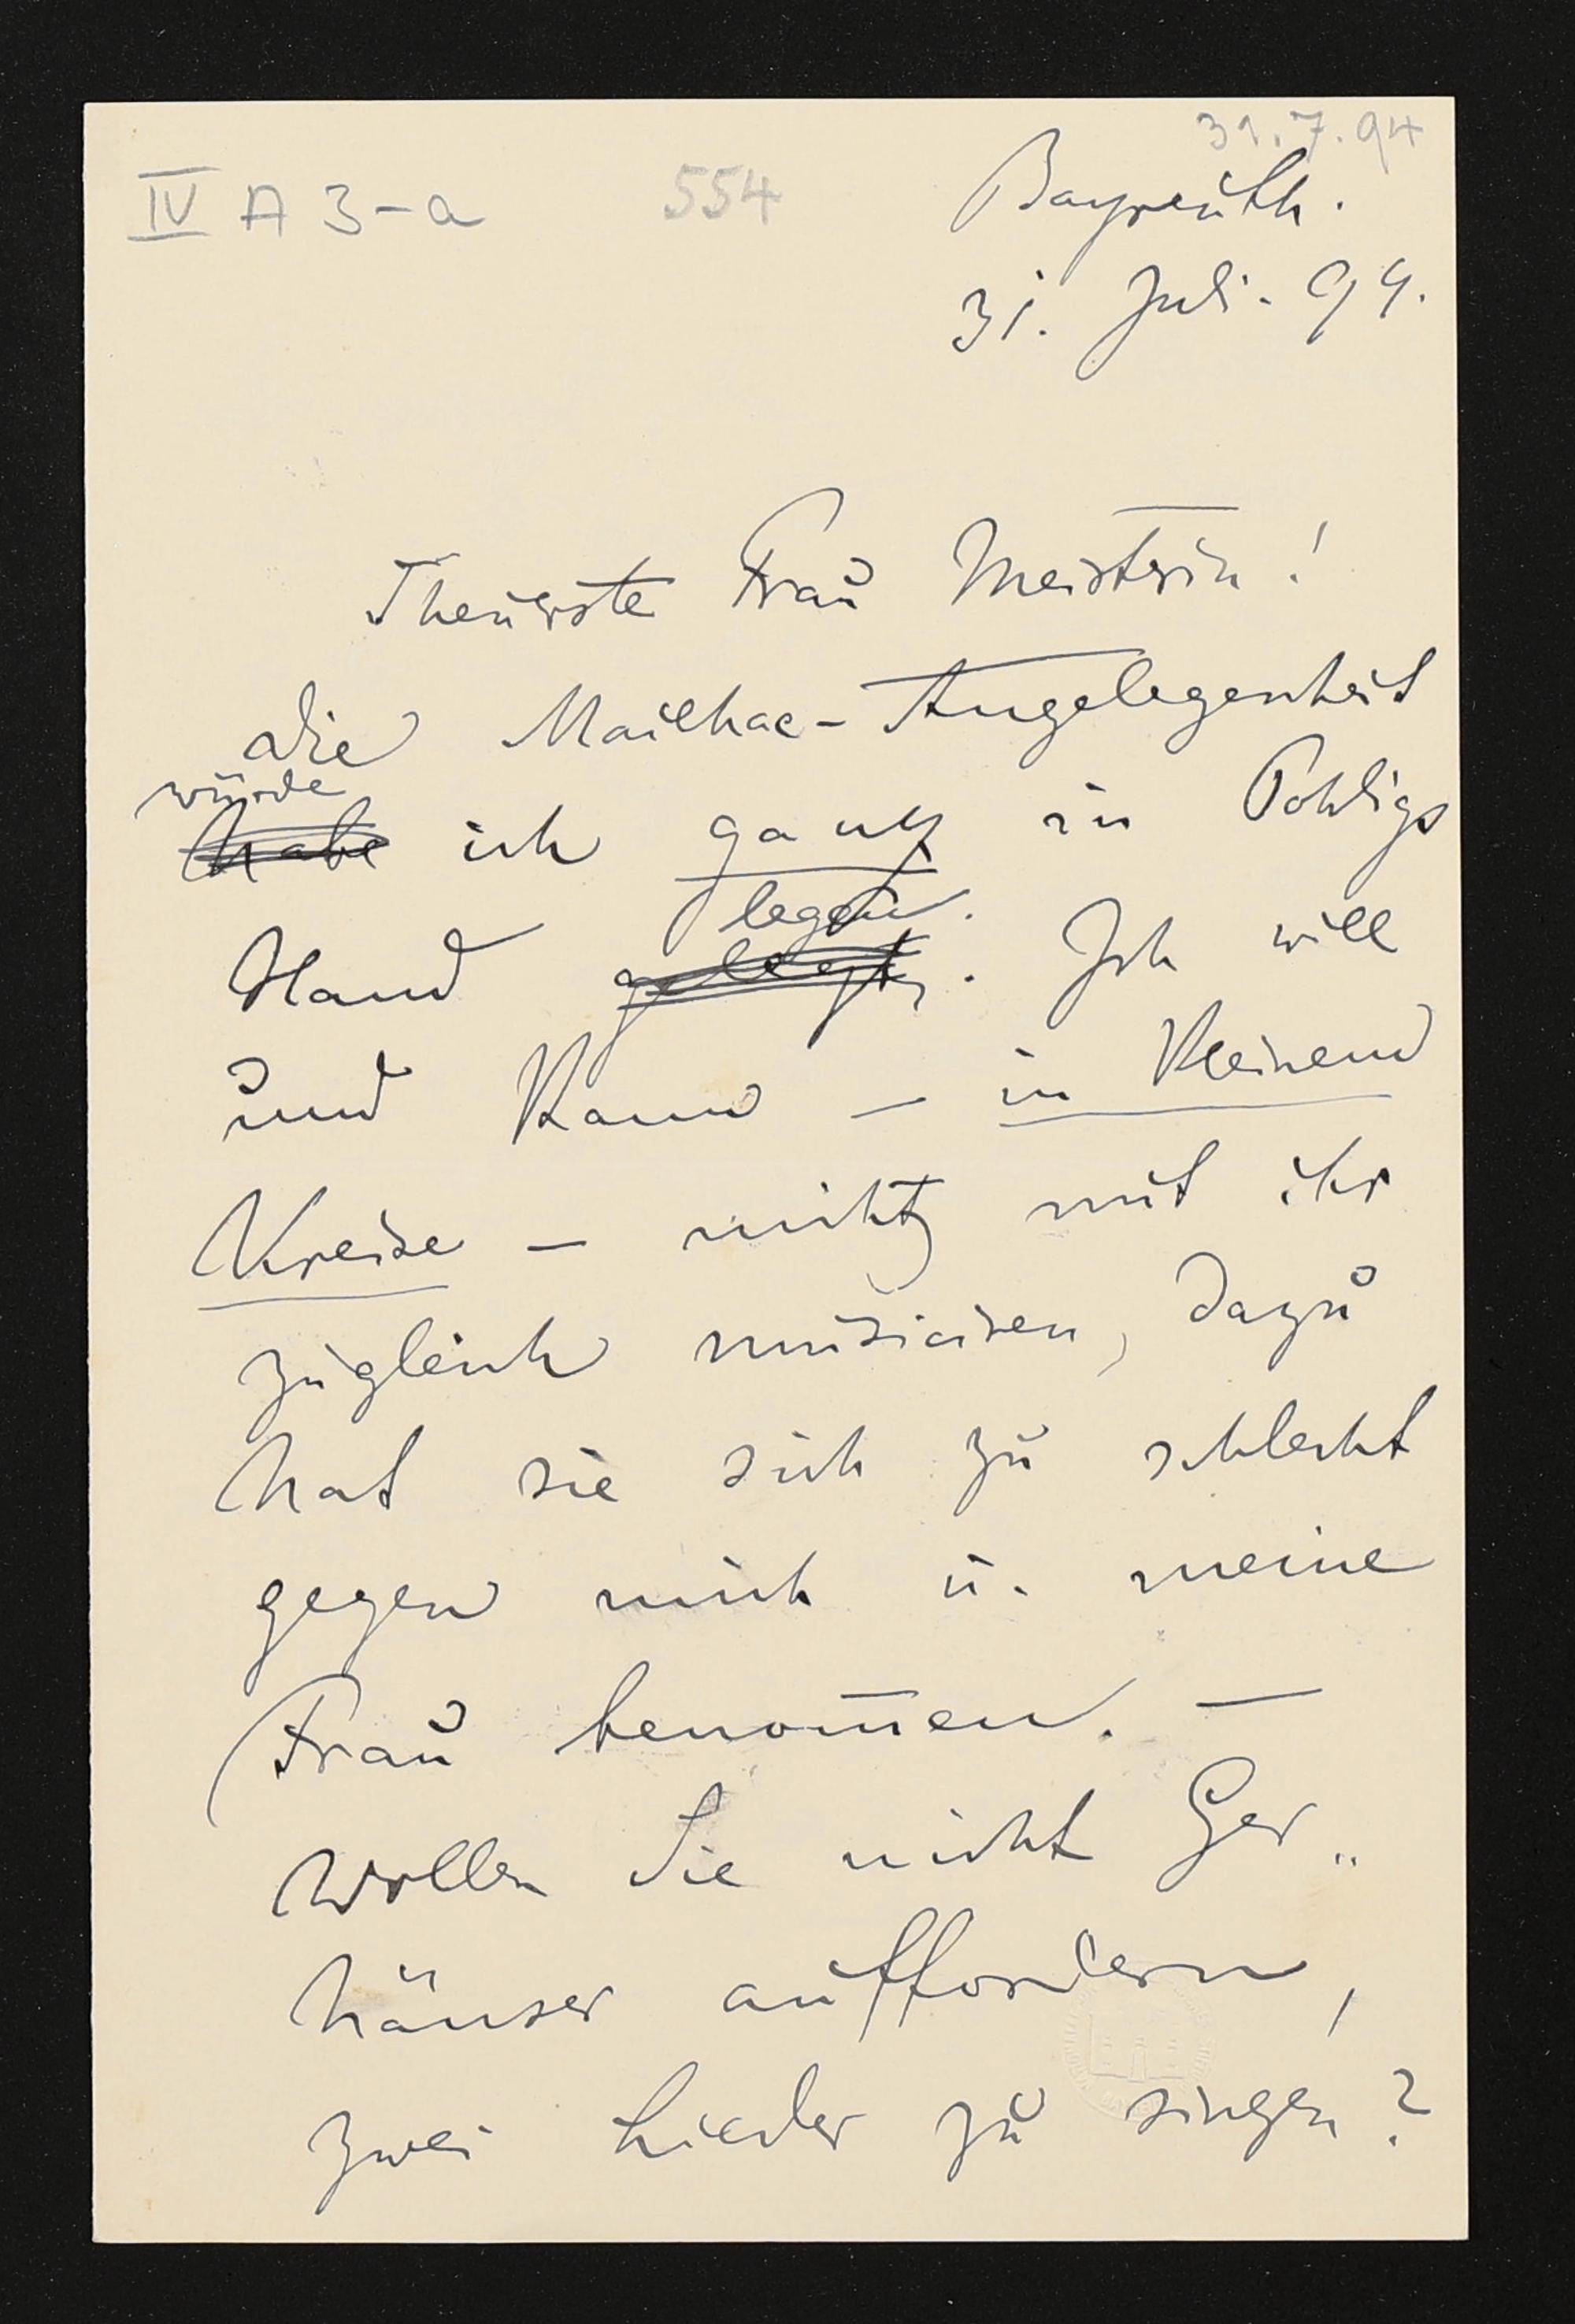 31.7.94
IV A 3-a 554 Bayreuth.
31. Juli. 94.
Theuerste Frau Meisterin!
die Mailhac-Angelegenheit
würde
habe ich ganz in Pohligs
legen.
Hand gelegt. Ich will
und kann – in kleinem
Kreise – nicht mit ihr
zugleich musiciren, dazu
hat sie sich zu schlecht
gegen mich u. meine
Frau benom̅en. —
Wollen Sie nicht Ger„
häuser auffordern,
zwei Lieder zu singen?